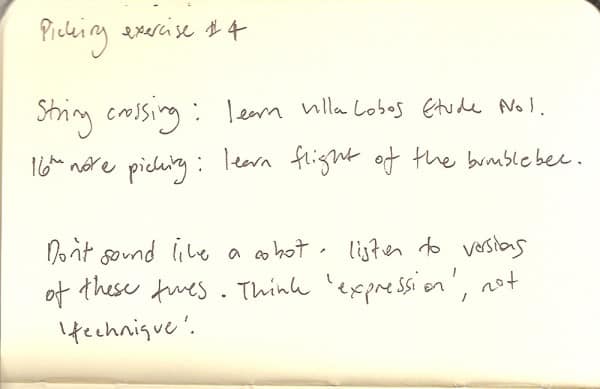 Picking exercise #4
String crossing: learn villa Lobos Etude No1.
16th note picking: learn flight of the bumblebee.
Don't sound like a robot. listen to versions
of these tunes. Think 'expression', not
'technique'.